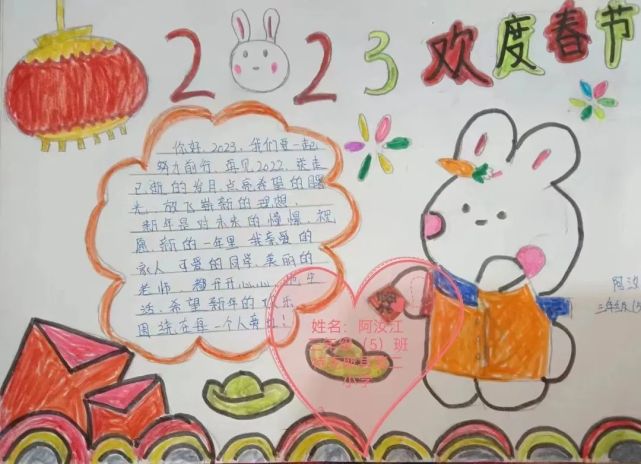 2023
欢度春节
你好,2023,我们要一起
努力前行,再见2022,送走
已逝的岁月,点亮希望的曙
光,放飞崭新的理想,
新年是对未来的憧憬,祝
愿,新的一年里,我亲爱的
家人,可爱的同学,美丽的
老师,都开开心心
活,希望新年的
围绕在每一个人身边!
阿汝
三年级(5)
姓名:阿汝江
(5)班
小学